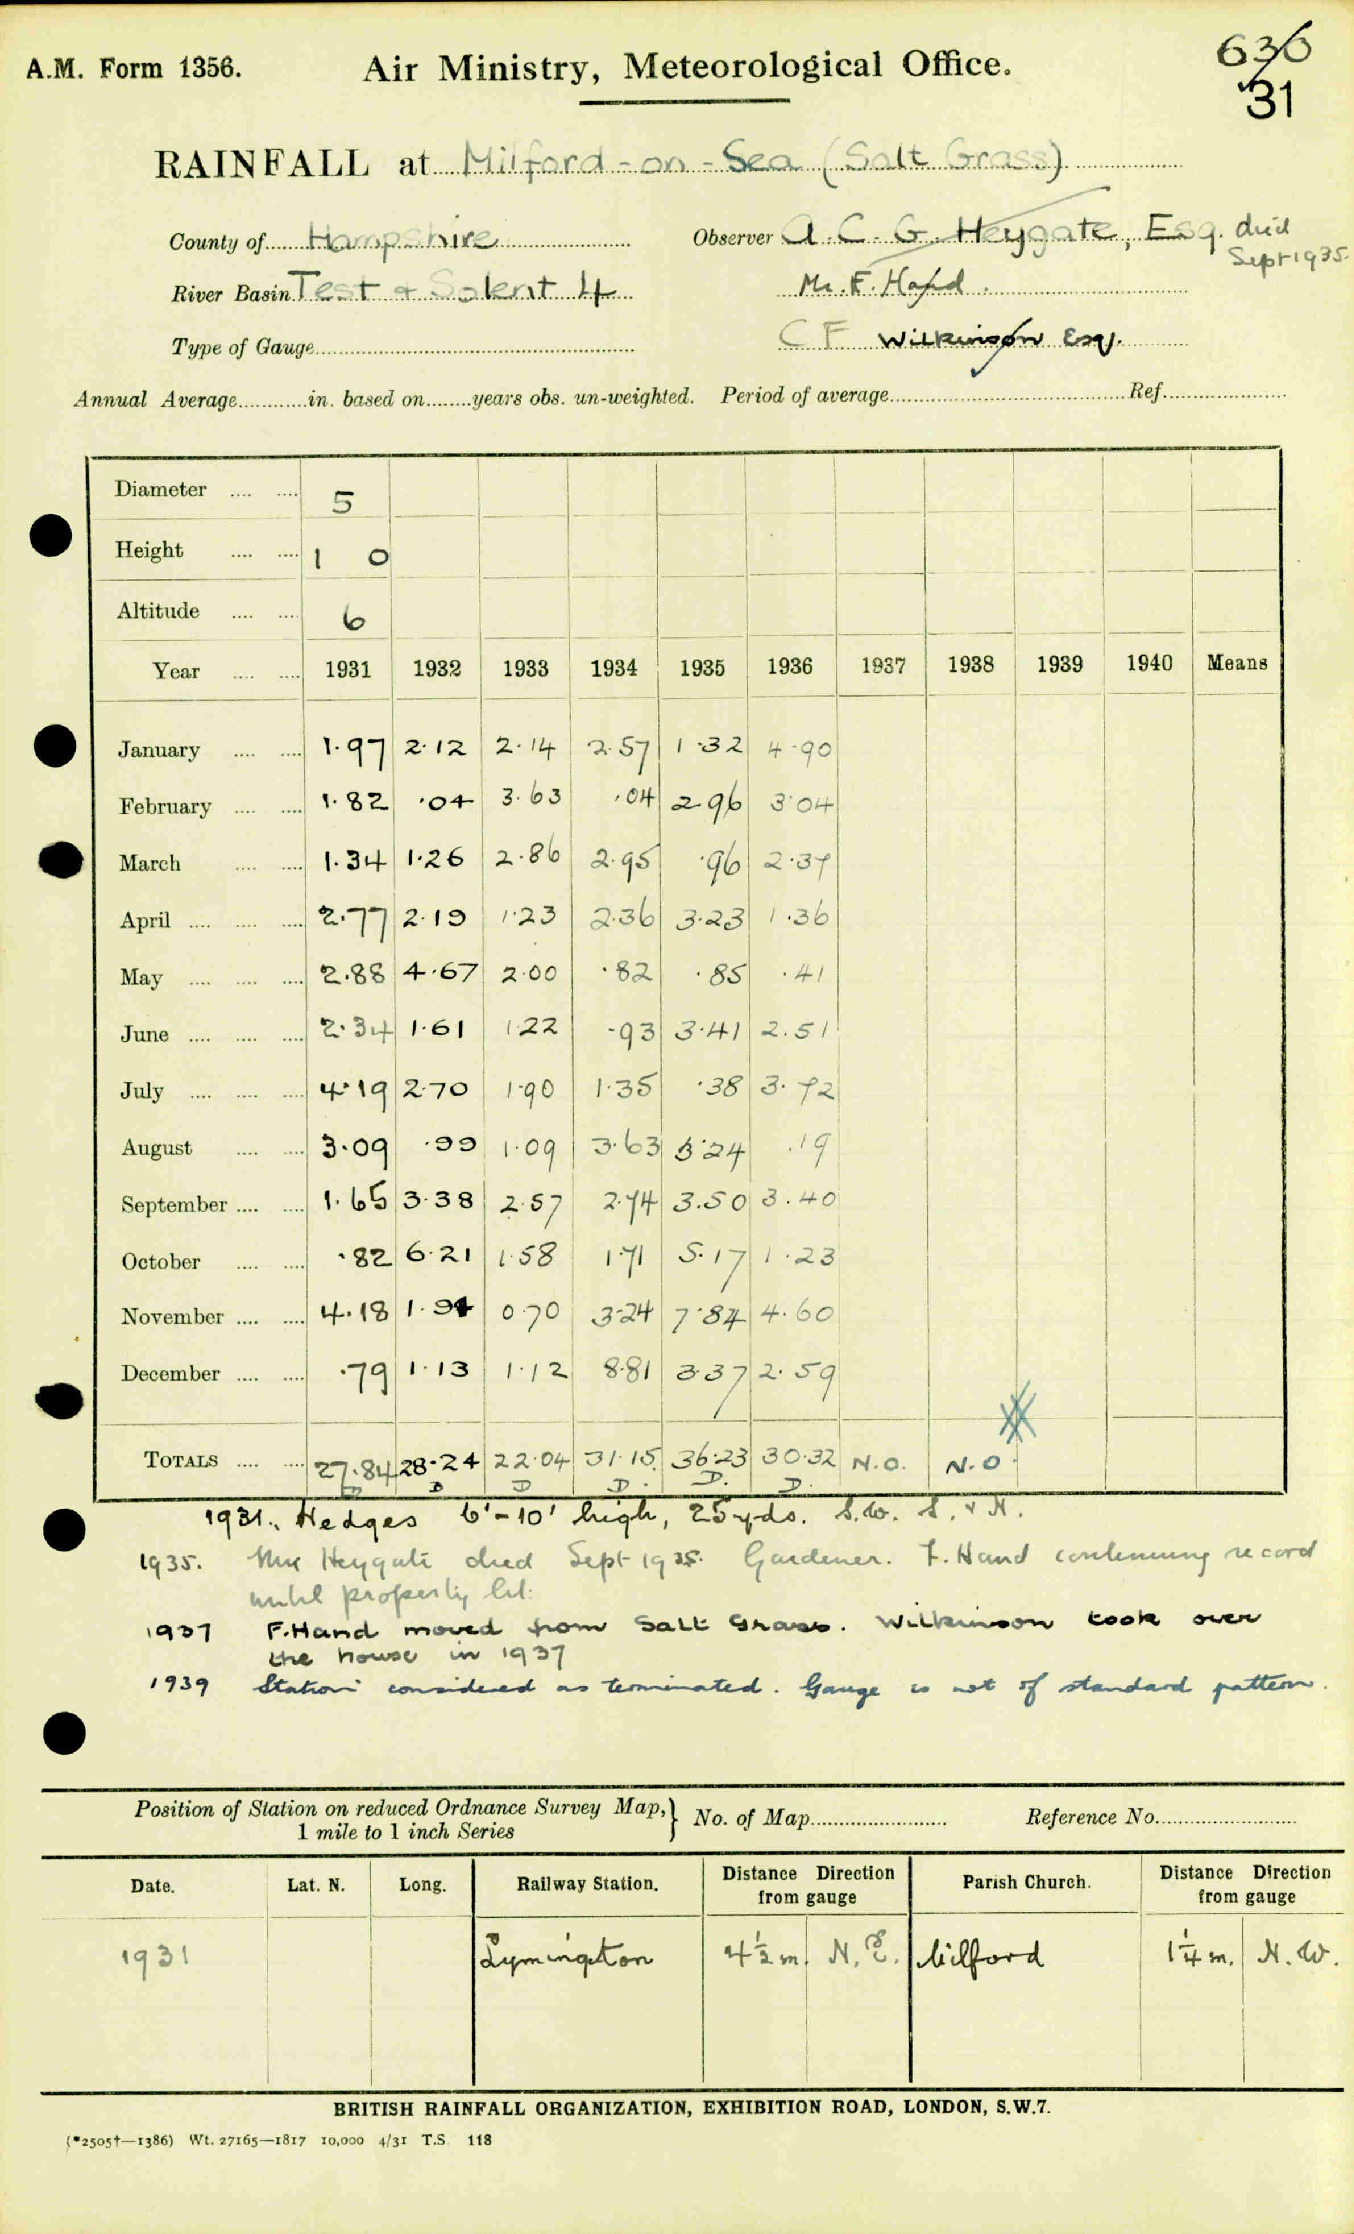 A.M. Form 1356.
Air Ministry, Meteorological Office.
630
31
RAINFALL at Milford-on-Sea (Salt Grass)
County of Hampshire Observer A.C.G. Heygate, Esq. died Sept 1935.
River Basin Test & Solent 4 Mr. F. Hand.
Type of Gauge C F Wilkinson Esq.
Annual Average in. based on years obs. un-weighted. Period of average Ref.
Diameter 5
Height 1 0
Altitude 6
Year 1931 1932 1933 1934 1935 1936 1937 1938 1939 1940 Means
January 1.97 2.12 2.14 2.57 1.32 4.90
February 1.82 .04 3.63 .04 2.96 3.04
March 1.34 1.26 2.86 2.95 .96 2.37
April 2.77 2.19 1.23 2.36 3.23 1.36
May 2.88 4.67 2.00 .82 .85 .41
June 2.34 1.61 1.22 .93 3.41 2.51
July 4.19 2.70 1.90 1.35 .38 3.72
August 3.09 .99 1.09 3.63 3.24 .19
September 1.65 3.38 2.57 2.74 3.50 3.40
October .82 6.21 1.58 1.71 5.17 1.23
November 4.18 1.94 0.70 3.24 7.84 4.60
December .79 1.13 1.12 8.81 3.37 2.59
TOTALS 27.84 28.24 22.04 31.15 36.23 30.32 N.O. N.O.
D D D D. D. D.
1931. Hedges 6'-10' high, 25 yds. S.W. S. & N.
1935. Mr Heygate died Sept 1935. Gardener. F. Hand continuing record
until property let.
1937 F. Hand moved from Salt Grass. Wilkinson took over
the house in 1937
1939 Station considered as terminated. Gauge is not of standard pattern.
Position of Station on reduced Ordnance Survey Map,} No. of Map Reference No.
1 mile to 1 inch Series
Date. Lat. N. Long. Railway Station. Distance Direction from gauge Parish Church. Distance Direction from gauge
1931 Lymington 4½ m. N.E. Milford 1¼ m. N.W.
BRITISH RAINFALL ORGANIZATION, EXHIBITION ROAD, LONDON, S.W.7.
(*2505†—1386) Wt. 27165—1817 10,000 4/31 T.S. 118